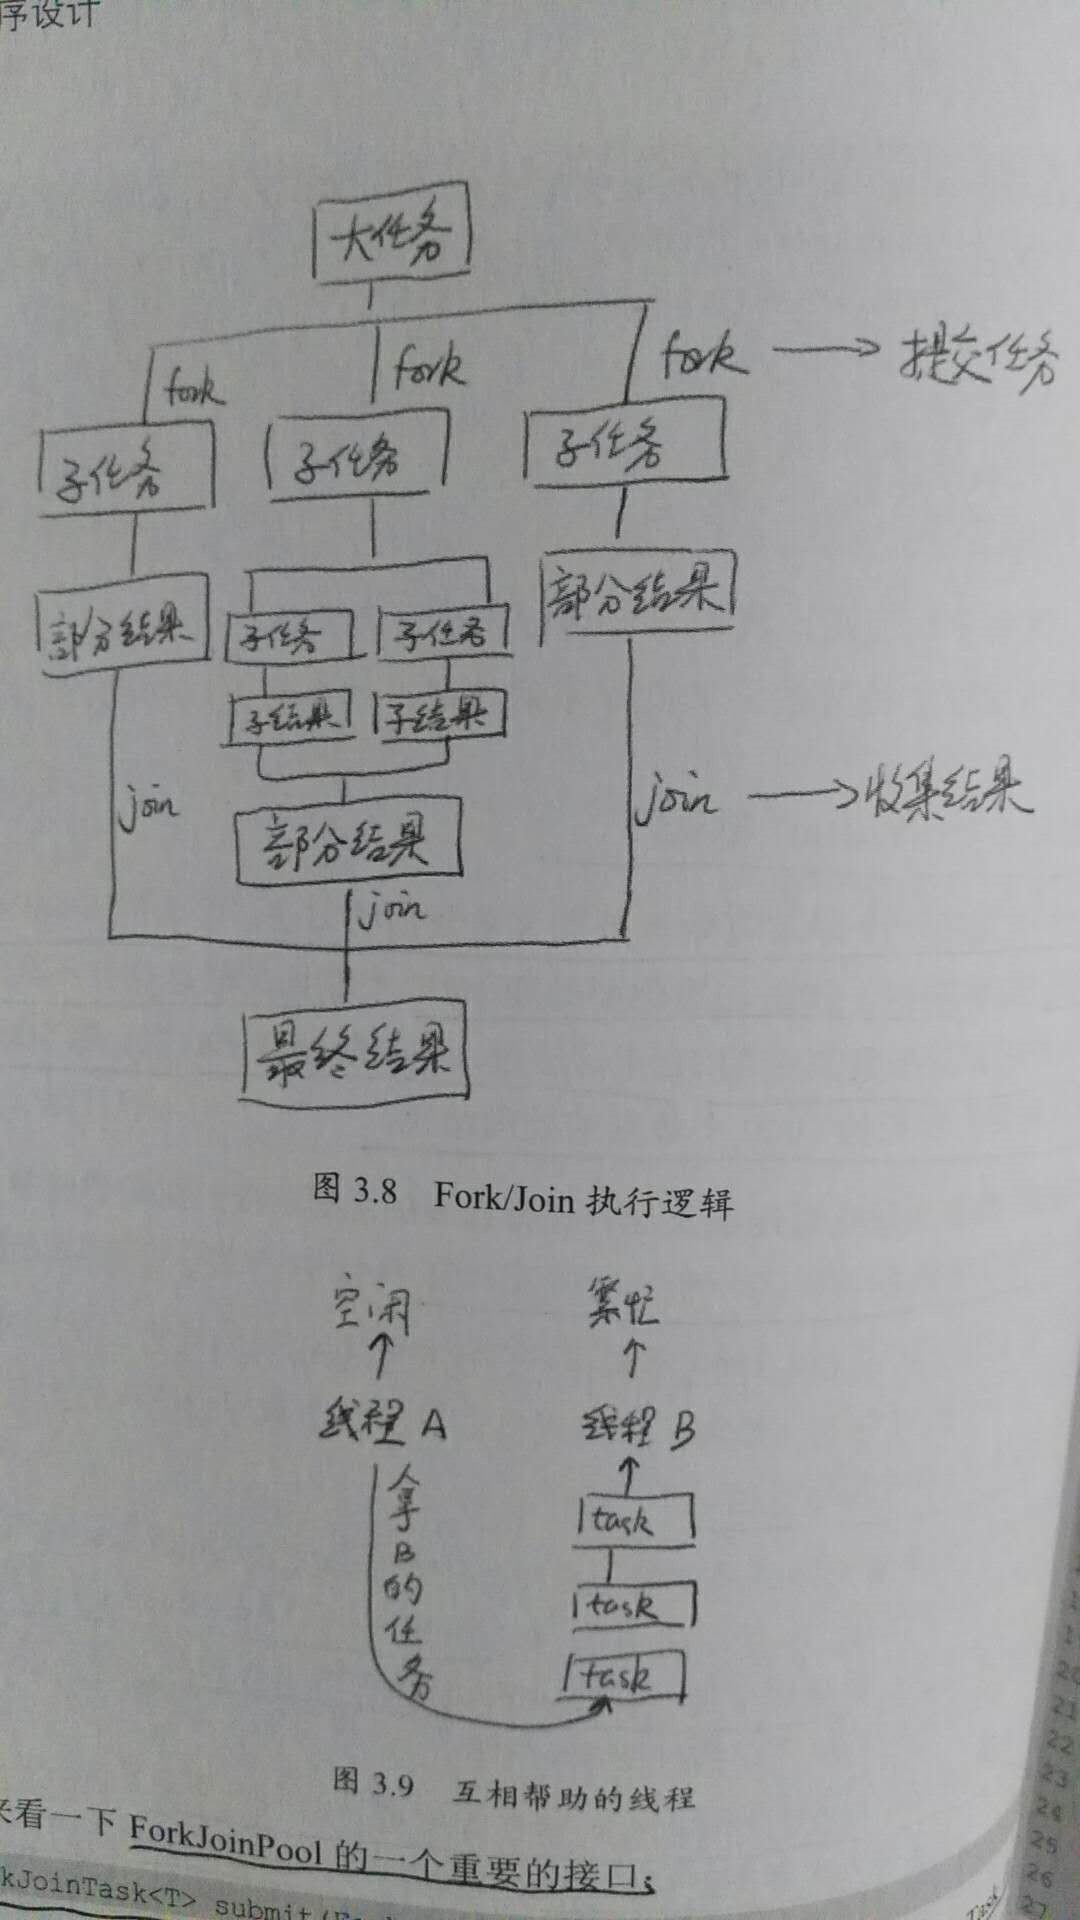 序设计
大任务
fork
fork
fork → 提交任务
子任务
子任务
子任务
部分结果
子任务
子任务
部分结果
子结果
子结果
join
join → 收集结果
部分结果
join
最终结果
图 3.8 Fork/Join 执行逻辑
空闲
繁忙
线程 A
线程 B
拿B的任务
task
task
task
图 3.9 互相帮助的线程
来看一下 ForkJoinPool 的一个重要的接口：
kJoinTask<T> submit(Fo
Task
20
21
22
23
24
25
26
27